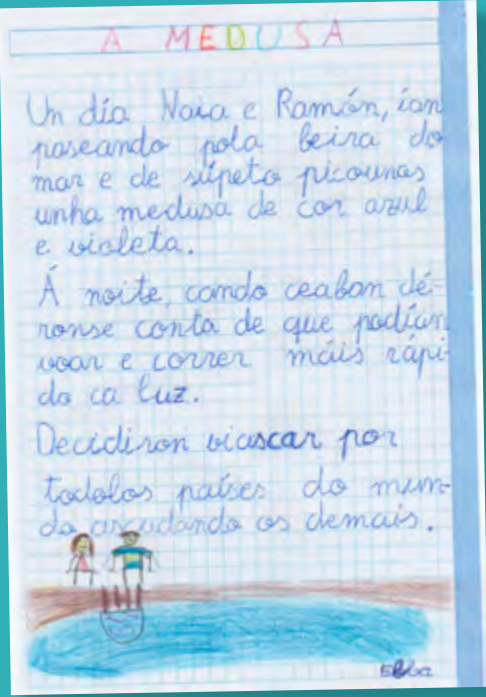 A MEDUSA
Un día Naia e Ramón, ían
paseando pola beira do
mar e de súpeto picounas
unha medusa de cor azul
e violeta.
Á noite, cando ceaban dé-
ronse conta de que podían
voar e correr máis rápi-
do ca luz.
Decidiron viaxar por
todolos países do mun-
do axudando os demais.
Ebba